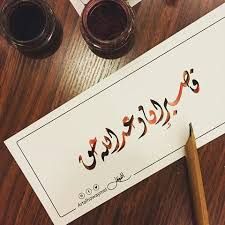 فاصبر إن وعد الله حق
Artalhuwaymel